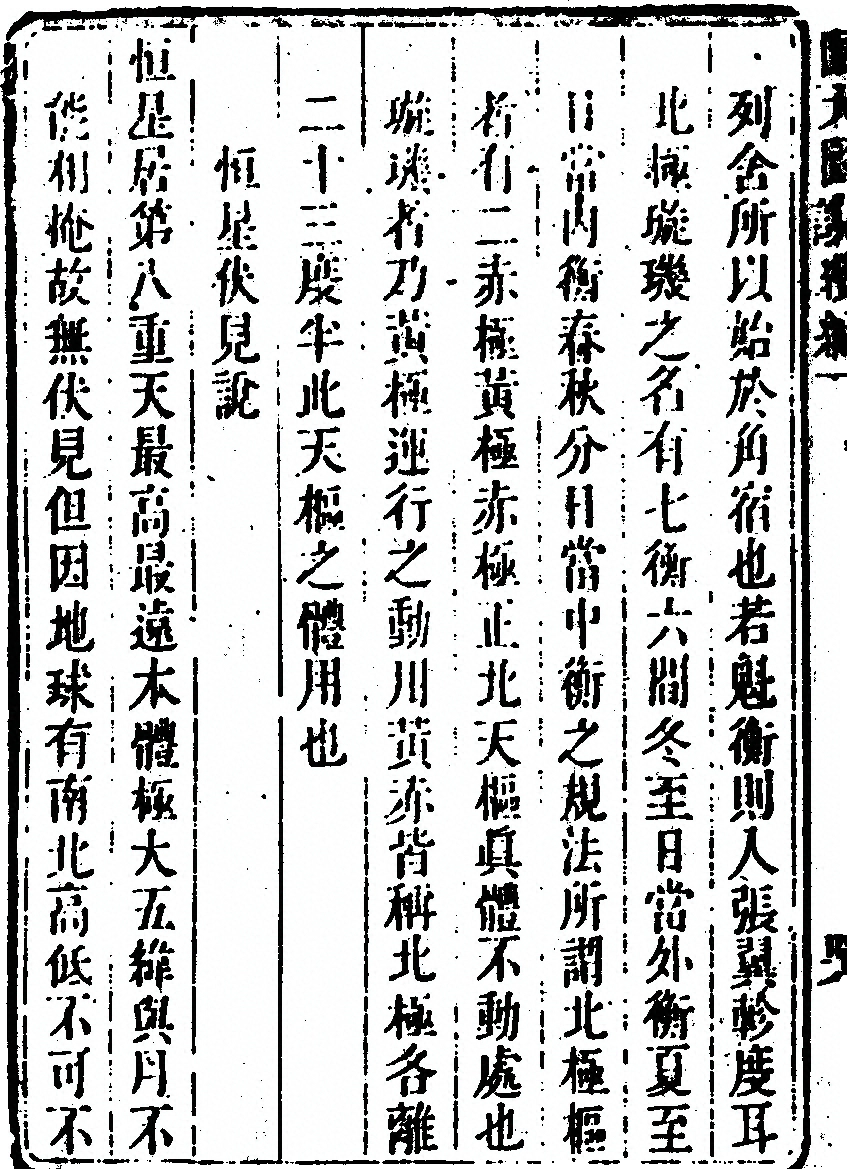 列舍所以始於角宿也若魁衡則入張翼軫度耳
北極璇璣之名有七衡六間冬至日當外衡夏至
日當內衡春秋分日當中衡之規法所謂北極樞
者有二赤極黃極赤極正北天樞眞體不動處也
璇璣者乃黃極運行之動川黃赤皆稱北極各離
二十三度半此天樞之體用也
恒星伏見說
恒星居第八重天最高最遠本體極大五緯與月不
能相掩故無伏見但因地球有南北高低不可不